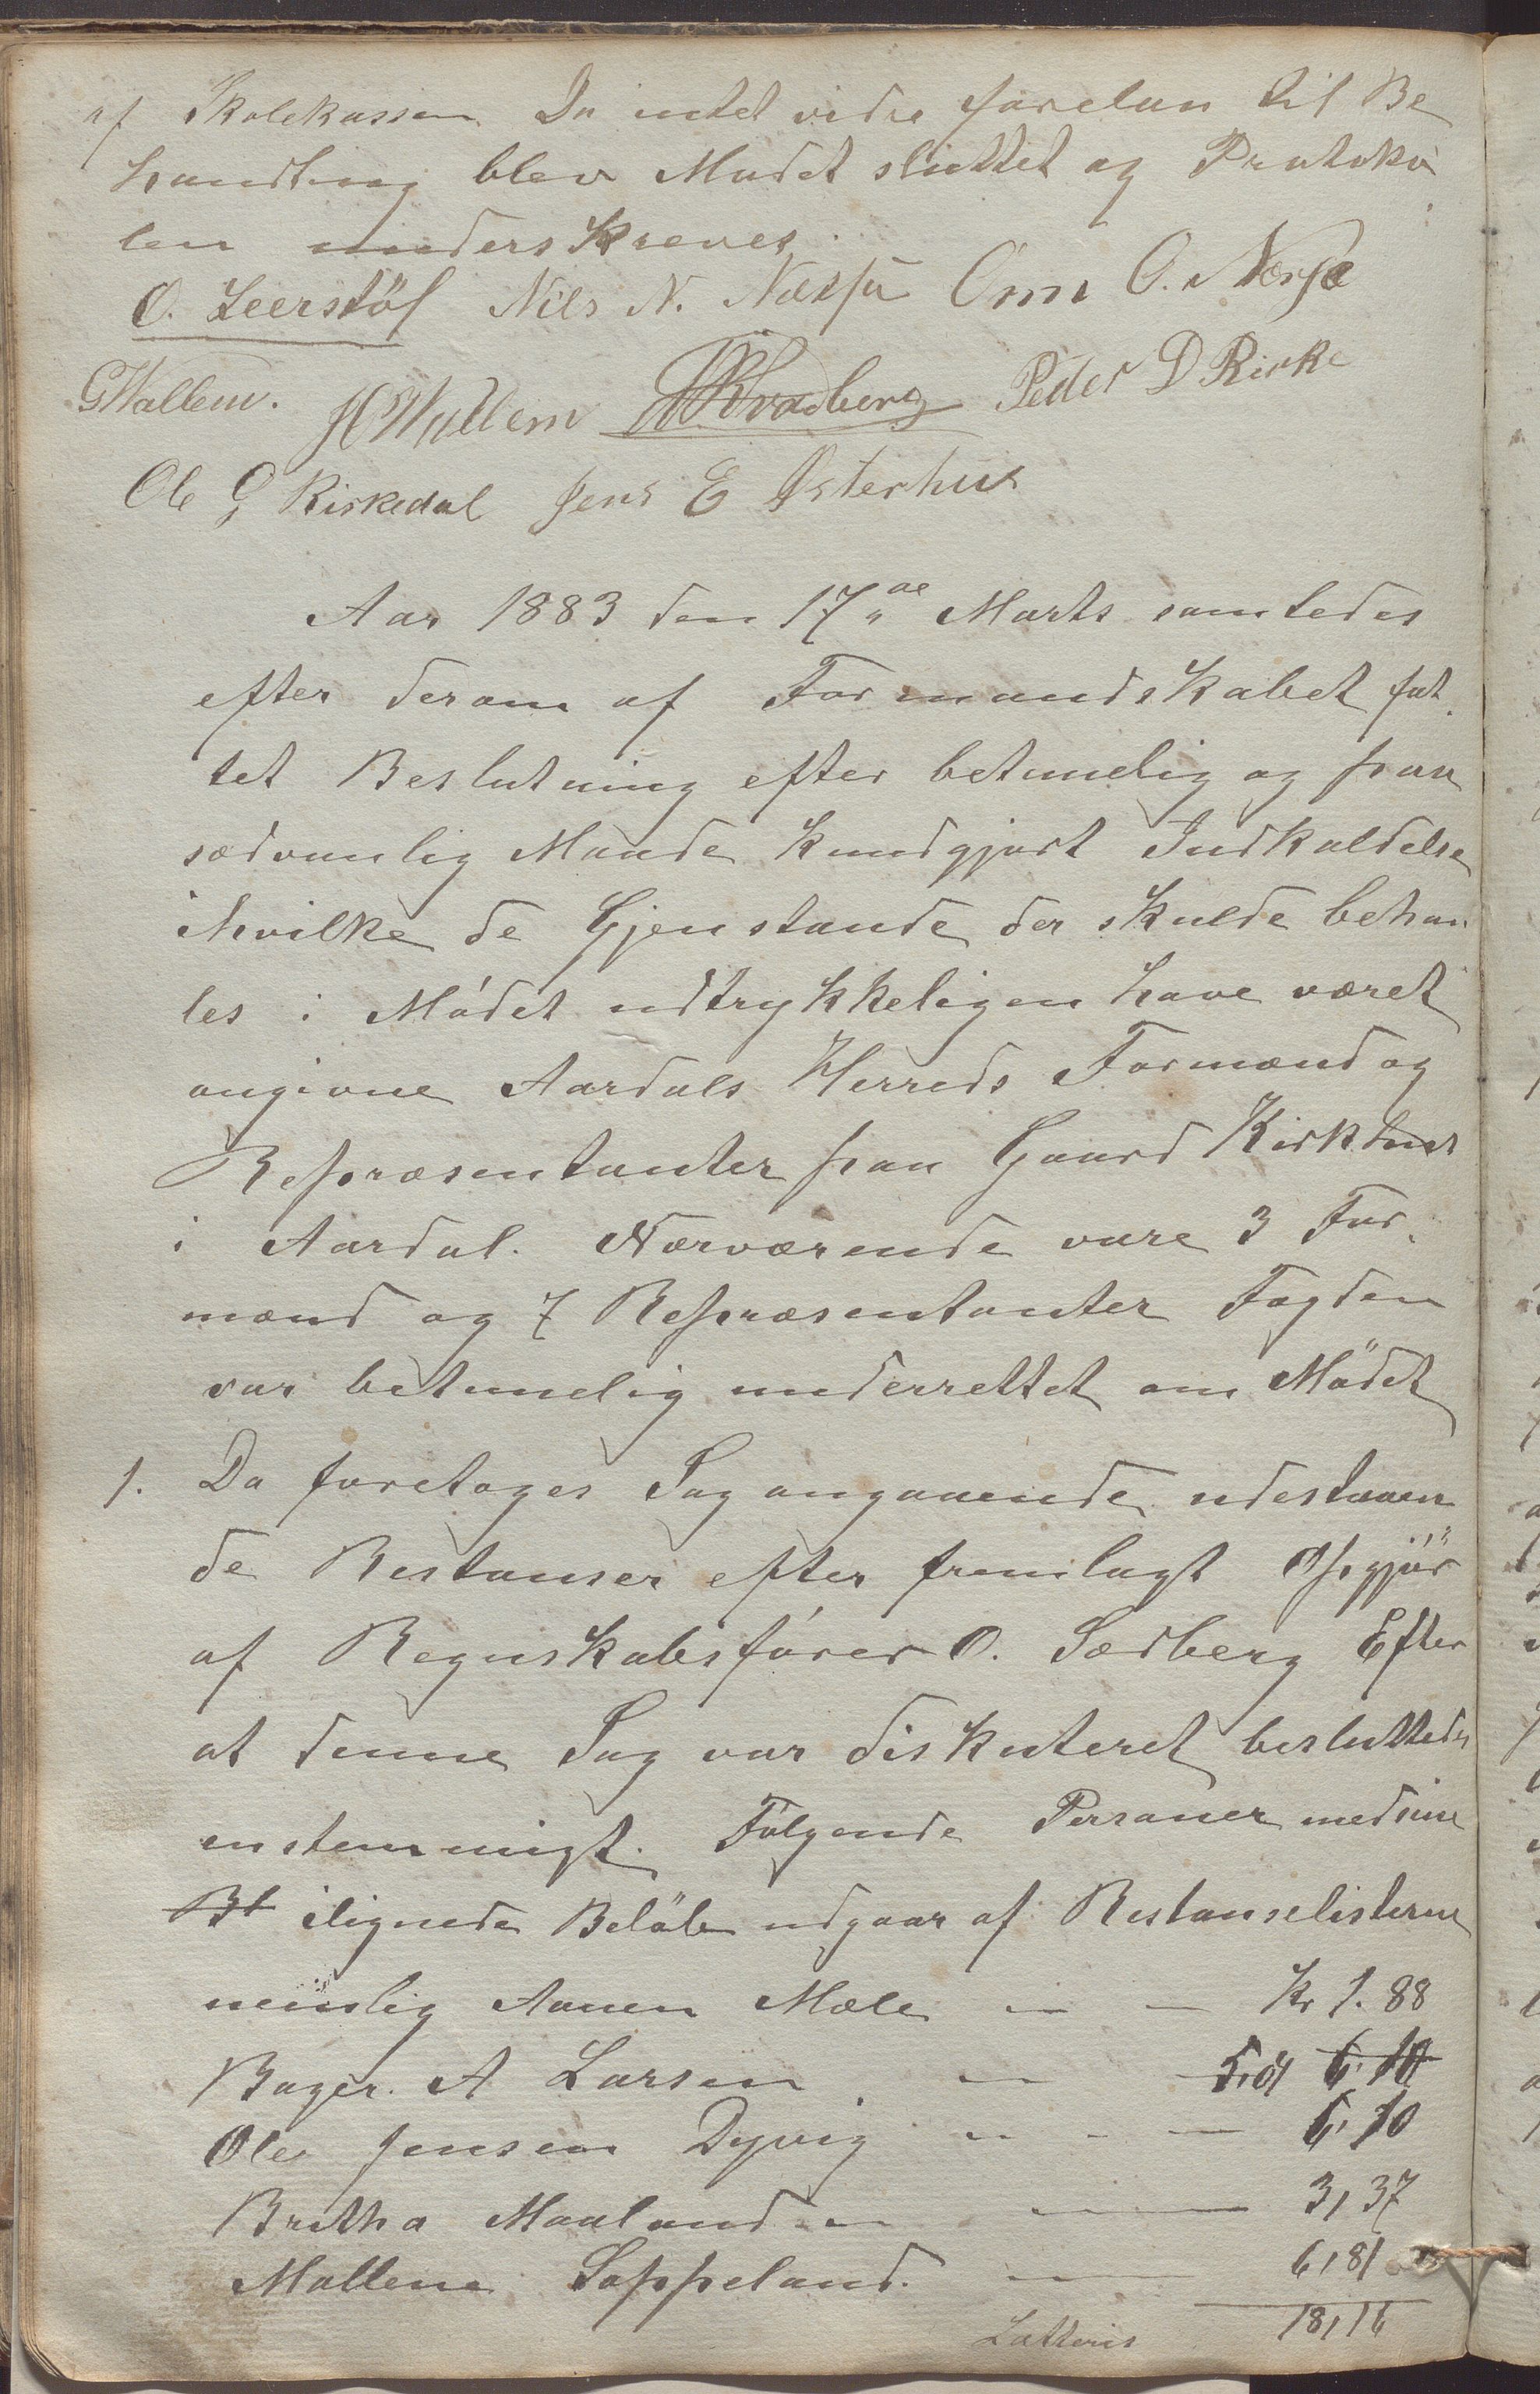 af Skolekassen Da intet vidre forelaa til Be
handling blev Mødet sluttet og Protoko
len underskreves.
O. Leerstøl Nils N. Næsse Omn O. Næsse
GWallem. HWallem Peder D Kirke
Ole G Riskedal Jens E Østerhus
Aar 1883 den 17de Marts samledes
efter derom af Formandskabet fat
tet Beslutning efter betimelig og paa
sædvanlig Maade kundgjort Indkaldelse
ihvilke de Gjenstande der skulde behan
les i Mødet udtrykkeligen have været
angivne Aardals Herreds Formænd og
Repræsentanter paa Gaard Kirkhus
i Aardal. Nærværende vare 3 For
mænd og 7 Repræsentanter Fogden
var betimelig underrettet om Mødet
1. Da foretoges Sag angaaende udestaaen
de Restanser efter fremlagt Opgjør
af Regnskabsfører O. Sædberg Efter
at denne Sag var diskuteret besluttedes
enstemmigt. Følgende Personer med sine
Bl ilignede Beløb udgaar af Restanselisterne
nemlig Aanen Mæle — — Kr 1.88
Bager. A Larsen — — 6,10
Ole Jensen Dyvig — — — 6,10
Bretha Maaland — — 3,37
Mallene Soppeland. — 6,81
Latteris 18,16